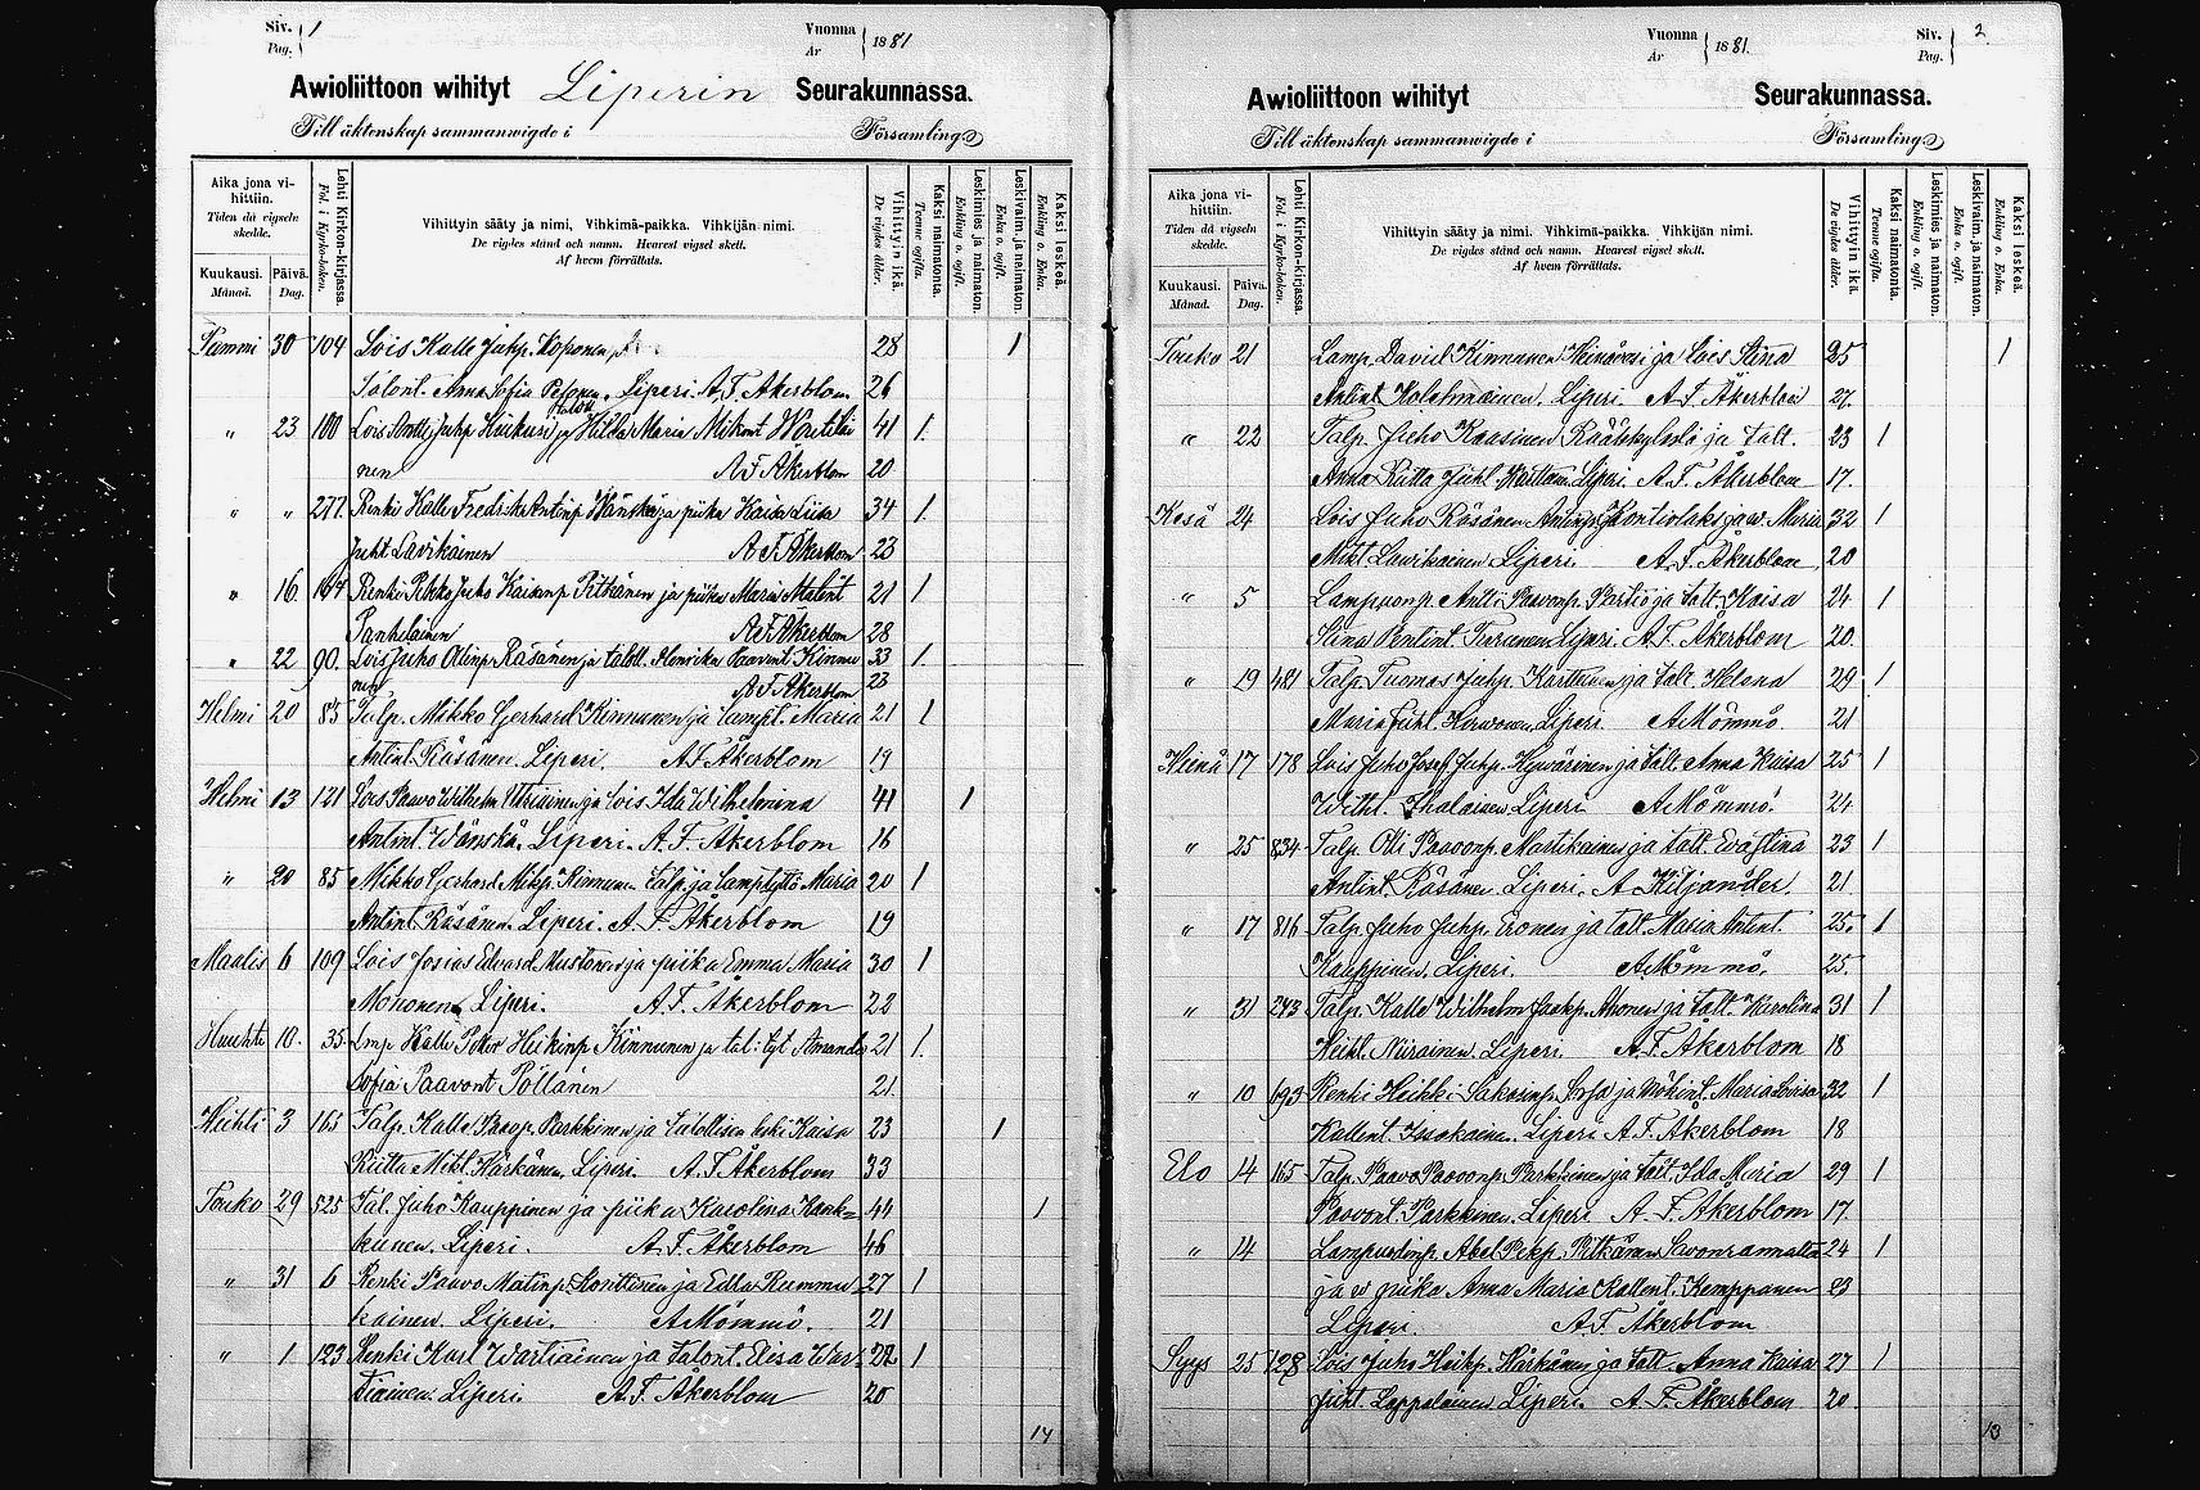 Siv. 1
Pag.
Vuonna 1881
År
Awioliittoon wihityt Liperin Seurakunnassa.
Till äktenskap sammanwigde i Församling
Aika jona vihittiin.
Tiden då vigseln skedde.
Kuukausi. Månad.
Päivä. Dag.
Lehti Kirkon-kirjassa.
Fol. i Kyrko-boken.
Vihittyin sääty ja nimi, Vihkimä-paikka. Vihkijän nimi.
De vigdes stånd och namn. Hvarest vigsel skett.
Af hvem förrättats.
Vihittyin ikä.
De vigdes ålder.
Kaksi naimatonta.
Tvenne ogifta.
Leskimies ja naimaton.
Enkling o. ogift.
Leskivaim. ja naimaton.
Enka o. ogift.
Kaksi leskeä.
Enkling o. Enka.
Tammi 30 104 Lois Kalle Juhp. Koponen 28 1
Talont. Anna Sofia Pesonen. Liperi. A. F. Åkerblom. 26
" 23 100 Lois Antti Juhp Kiukusi ja Hilda Maria Mikont Wäntti 41 1.
nen A F Åkerblom 20
" " 277. Renki Kalle Fredrik Antinp Wänskä ja piika Kaisa Liisa 34 1.
Juht Lavikainen A F Åkerblom 23
" 16. 164 Renki Pekko Juho Kaisanp Pitkänen ja piika Maria Matint 21 1
Pantelainen A F Åkerblom 28
" 22 90. Lois Juho Ollinp Räsänen ja talolt. Henrika Paavint Kinnu 33 1.
nen A F Åkerblom 23
Helmi 20 85 Talp. Mikko Gerhard Kinnunen ja lampt. Maria 21 1
Antint. Räsänen. Liperi. A F Åkerblom 19
Helmi 13 121 Lois Paavo Wilhelm Utriainen ja lois Ida Wilhelmina 41 1
Antint. Wänskä. Liperi. A. F. Åkerblom 16
" 20 85 Mikko Gerhard Mikp. Kinnunen talp. ja lamptyttö Maria 20 1
Antint Räsänen. Liperi. A. F. Åkerblom 19
Maalis 6 109 Lois Josias Edvard Mustonen ja piika Emma Maria 30 1
Mononen. Liperi. A. F. Åkerblom 22
Huuhti 10. 35. Lmp Kalle Peter Heikinp Kinnunen ja tal: tyt Amanda 21 1.
Sofia Paavont Pöllänen 21.
Huhti 3 165 Talp. Kalle Paavp. Parkkinen ja talollisen leski Kaisa 23 1
Riitta Mikl. Härkänen, Liperi. A. F Åkerblom 33
Touko 29 525 Tal. Juho Kauppinen ja piika Karolina Kaak= 44 1
kunen. Liperi. A. F. Åkerblom 46
" 31 6 Renki Paavo Matinp. Konttinen ja Edla Rummu= 27 1
kainen Liperi. A Mömmö. 21
" 1 123 Renki Karl Wartiainen ja talont. Elisa War= 22 1
tiainen. Liperi. A. F. Åkerblom 20
14
Vuonna 1881.
År
Siv. 2
Pag.
Awioliittoon wihityt Seurakunnassa.
Till äktenskap sammanwigde i Församling
Aika jona vihittiin.
Tiden då vigseln skedde.
Kuukausi. Månad.
Päivä. Dag.
Lehti Kirkon-kirjassa.
Fol. i Kyrko-boken.
Vihittyin sääty ja nimi. Vihkimä-paikka. Vihkijän nimi.
De vigdes stånd och namn. Hvarest vigsel skett.
Af hvem förrättats.
Vihittyin ikä.
De vigdes ålder.
Kaksi naimatonta.
Tvenne ogifta.
Leskimies ja naimaton.
Enkling o. ogift.
Leskivaim. ja naimaton.
Enka o. ogift.
Kaksi leskeä.
Enkling o. Enka.
Touko 21 Lamp. David Kinnunen Heinävesi ja lois Stina 25 1
Antint Kolehmainen. Liperi. A. F. Åkerblom 27.
" 22 Talp. Juho Kaasinen Rääkkylästä ja talt. 23 1
Anna Riitta Juhl. Karttunen Liperi. A. F. Åkerblom 17.
Kesä 24 Lois Juho Räsänen Antinp. Kontiolaks ja w. Maria 32 1
Mikt Laurikainen Liperi. A. F. Åkerblom 20
" 5 Lampuonp. Antti Paavonp. Partio ja talt. Kaisa 24 1
Stina Pentint. Turunen Liperi. A. F. Åkerblom 20.
" 19 481 Talp. Tuomas Juhp. Karttunen ja talt. Helena 29 1
Maria Juhl. Hirwonen, Liperi. A Mömmö. 21
Heinä 17 178 Lois Juho Josef Juhp. Hywärinen ja talt. Anna Kaisa 25 1
Wilhl. Ihalainen. Liperi A Mömmö. 24
" 25 834 Talp. Olli Paavonp. Martikainen ja talt. Eva Stina 23 1
Antint. Räsänen. Liperi. A Kiljander. 21.
" 17 816 Talp. Juho Juhp. Eronen ja talt. Maria Antint. 25. 1
Kauppinen. Liperi. A Mömmö. 25.
" 31 243 Talp. Kalle Wilhelm Jaakp. Ahonen ja talt. Karolina 31 1
Heikl. Niirainen. Liperi. A. F. Åkerblom 18
" 10 693 Renki Heikki Sakarinp. Sorsa ja mökint. Maria Lovisa 32 1
Kallent. Issakainen. Liperi A. F. Åkerblom 18
Elo 14 165 Talp. Paavo Paavonp. Parkkinen ja talt. Ida Maria 29 1
Paavont. Parkkinen. Liperi A. F. Åkerblom 17.
" 14 Lampuodinp. Abel Pekp. Pitkänen Savonrannalta 24 1
ja w piika Anna Maria Kallent. Kemppanen 23
Liperi. A. F. Åkerblom
Syys 25 128 Lois Juho Heikp. Härkänen ja talt. Anna Kaisa 27 1
Juht. Loppalainen. Liperi. A. F. Åkerblom 20.
13